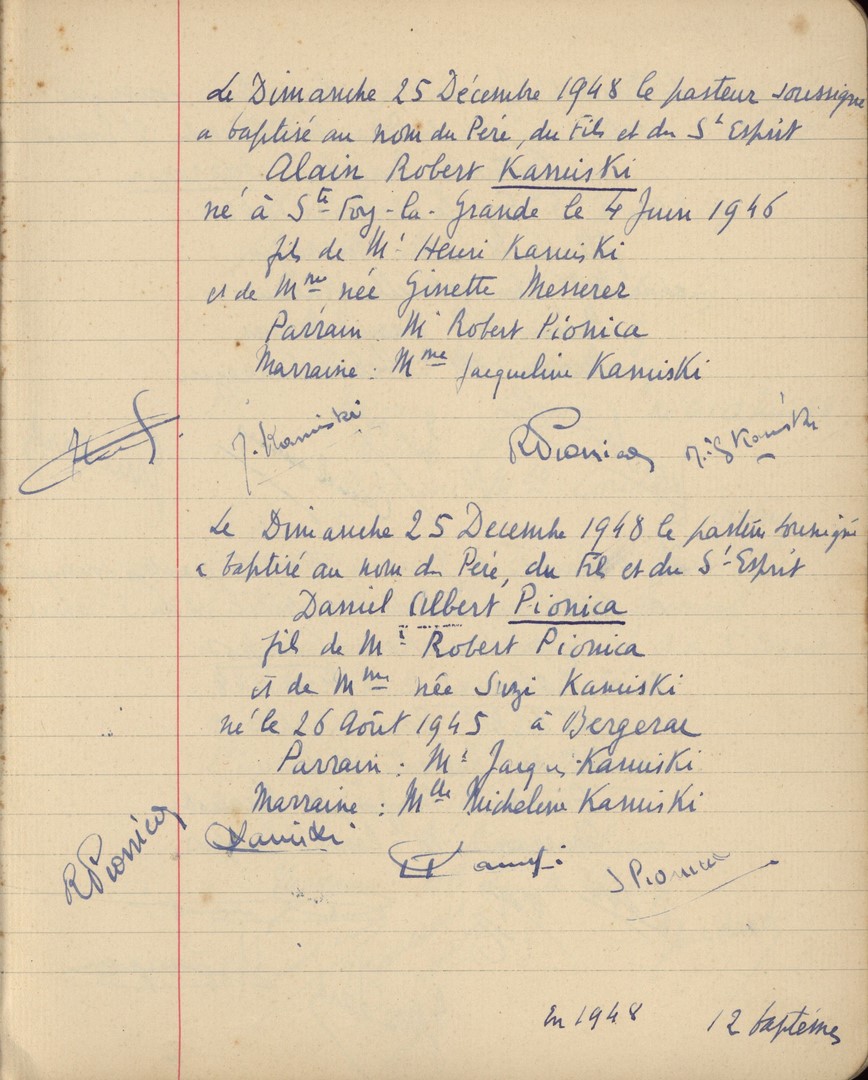 Le Dimanche 25 Décembre 1948 le pasteur soussigné
a baptisé au nom du Père, du Fils et du St Esprit
Alain Robert Kamiski
né à Ste Foy-la-Grande le 4 Juin 1946
fils de Mr Henri Kamiski
et de Mme née Ginette Messerer
Parrain Mr Robert Pionica
Marraine : Mme Jacqueline Kamiski
J. Kamiski
RPionica
Le Dimanche 25 Decembre 1948 le pasteur soussigné
a baptisé au nom du Père, du Fils et du St Esprit
Daniel Albert Pionica
fils de Mr Robert Pionica
et de Mme née Suzi Kamiski
né le 26 Août 1945 à Bergerac
Parrain : Mr Jacques Kamiski
Marraine : Mlle Micheline Kamiski
RPionica
Kamiski
S Pionica
En 1948 12 baptêmes